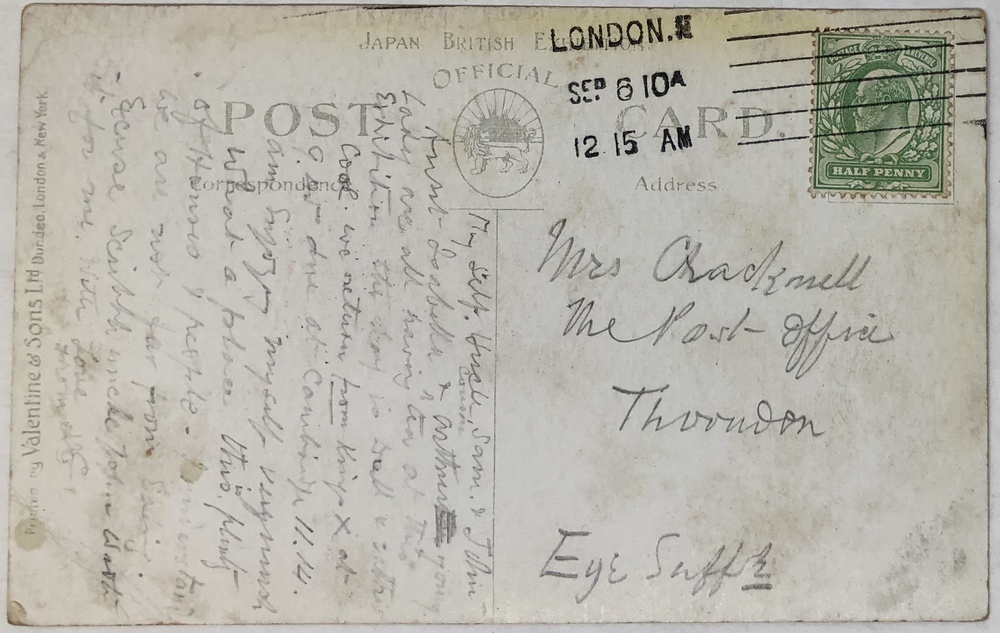 JAPAN BRITISH EXHIBITION
OFFICIAL
POST CARD.
Correspondence
Address
LONDON.
SEP 6 10A
12 15 AM
POSTAGE REVENUE
HALF PENNY
Mrs Cracknell
The Post Office
Thorndon
Eye Suffk
My Self. Uncle, Sam. & John
cousin
Aunt Isabella & Arthur young
Lady are all having tea at this
Exhibition the day is well
Cool. we return from Kings X at
9. due at Cambridge 11.14.
I am Enjoying myself very much
What a place this is plenty
of Houses & people.
we are not far from
Excuse Scribble uncle John
it for me. With Love
from
Printed by Valentine & Sons Ltd Dundee. London & New York.